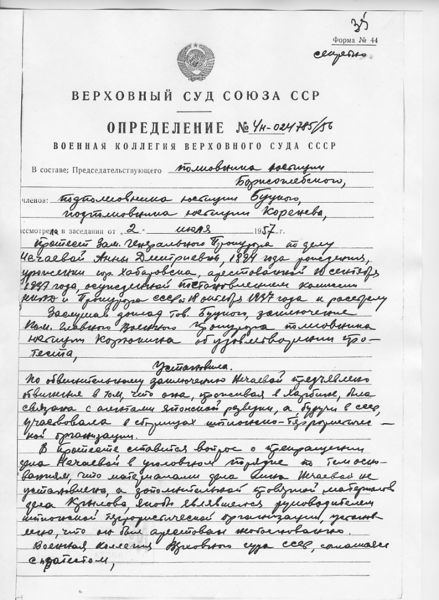 35
Форма № 44
секретно
ВЕРХОВНЫЙ СУД СОЮЗА ССР
ОПРЕДЕЛЕНИЕ № 4н-024785/56
ВОЕННАЯ КОЛЛЕГИЯ ВЕРХОВНОГО СУДА СССР
В составе: Председательствующего полковника юстиции
Борисоглебского,
членов: подполковника юстиции Буцного,
подполковника юстиции Коренева,
рассмотрела в заседании от 2 июля 1957 г.
протест Зам. Генерального Прокурора по делу
Нечаевой Анны Дмитриевны, рождения,
уроженки гор. Хабаровска, арестованной сентября
1937 года, осужденной постановлением комиссии
НКВД и Прокурора СССР октября 1937 года к расстрелу
Заслушав доклад тов. Буцного, заключение
Пом. Главного Военного Прокурора полковника
юстиции об удовлетворении про-
теста,
Установила:
По обвинительному заключению Нечаевой предъявлено
обвинение в том, что она, проживая в Харбине, была
связана с агентами японской разведки, а будучи в СССР,
участвовала в сборищах шпионско-террористичес-
кой организации.
В протесте ставится вопрос о прекращении
дела Нечаевой в уголовном порядке по тем осно-
ваниям, что материалами дела вина Нечаевой не
установлена, а дополнительной проверкой материалов
дела Крылова, якобы являвшегося руководителем
шпионской террористической организации, установ-
лено, что он был арестован необоснованно.
Военная Коллегия Верховного Суда СССР, соглашаясь
с протестом,